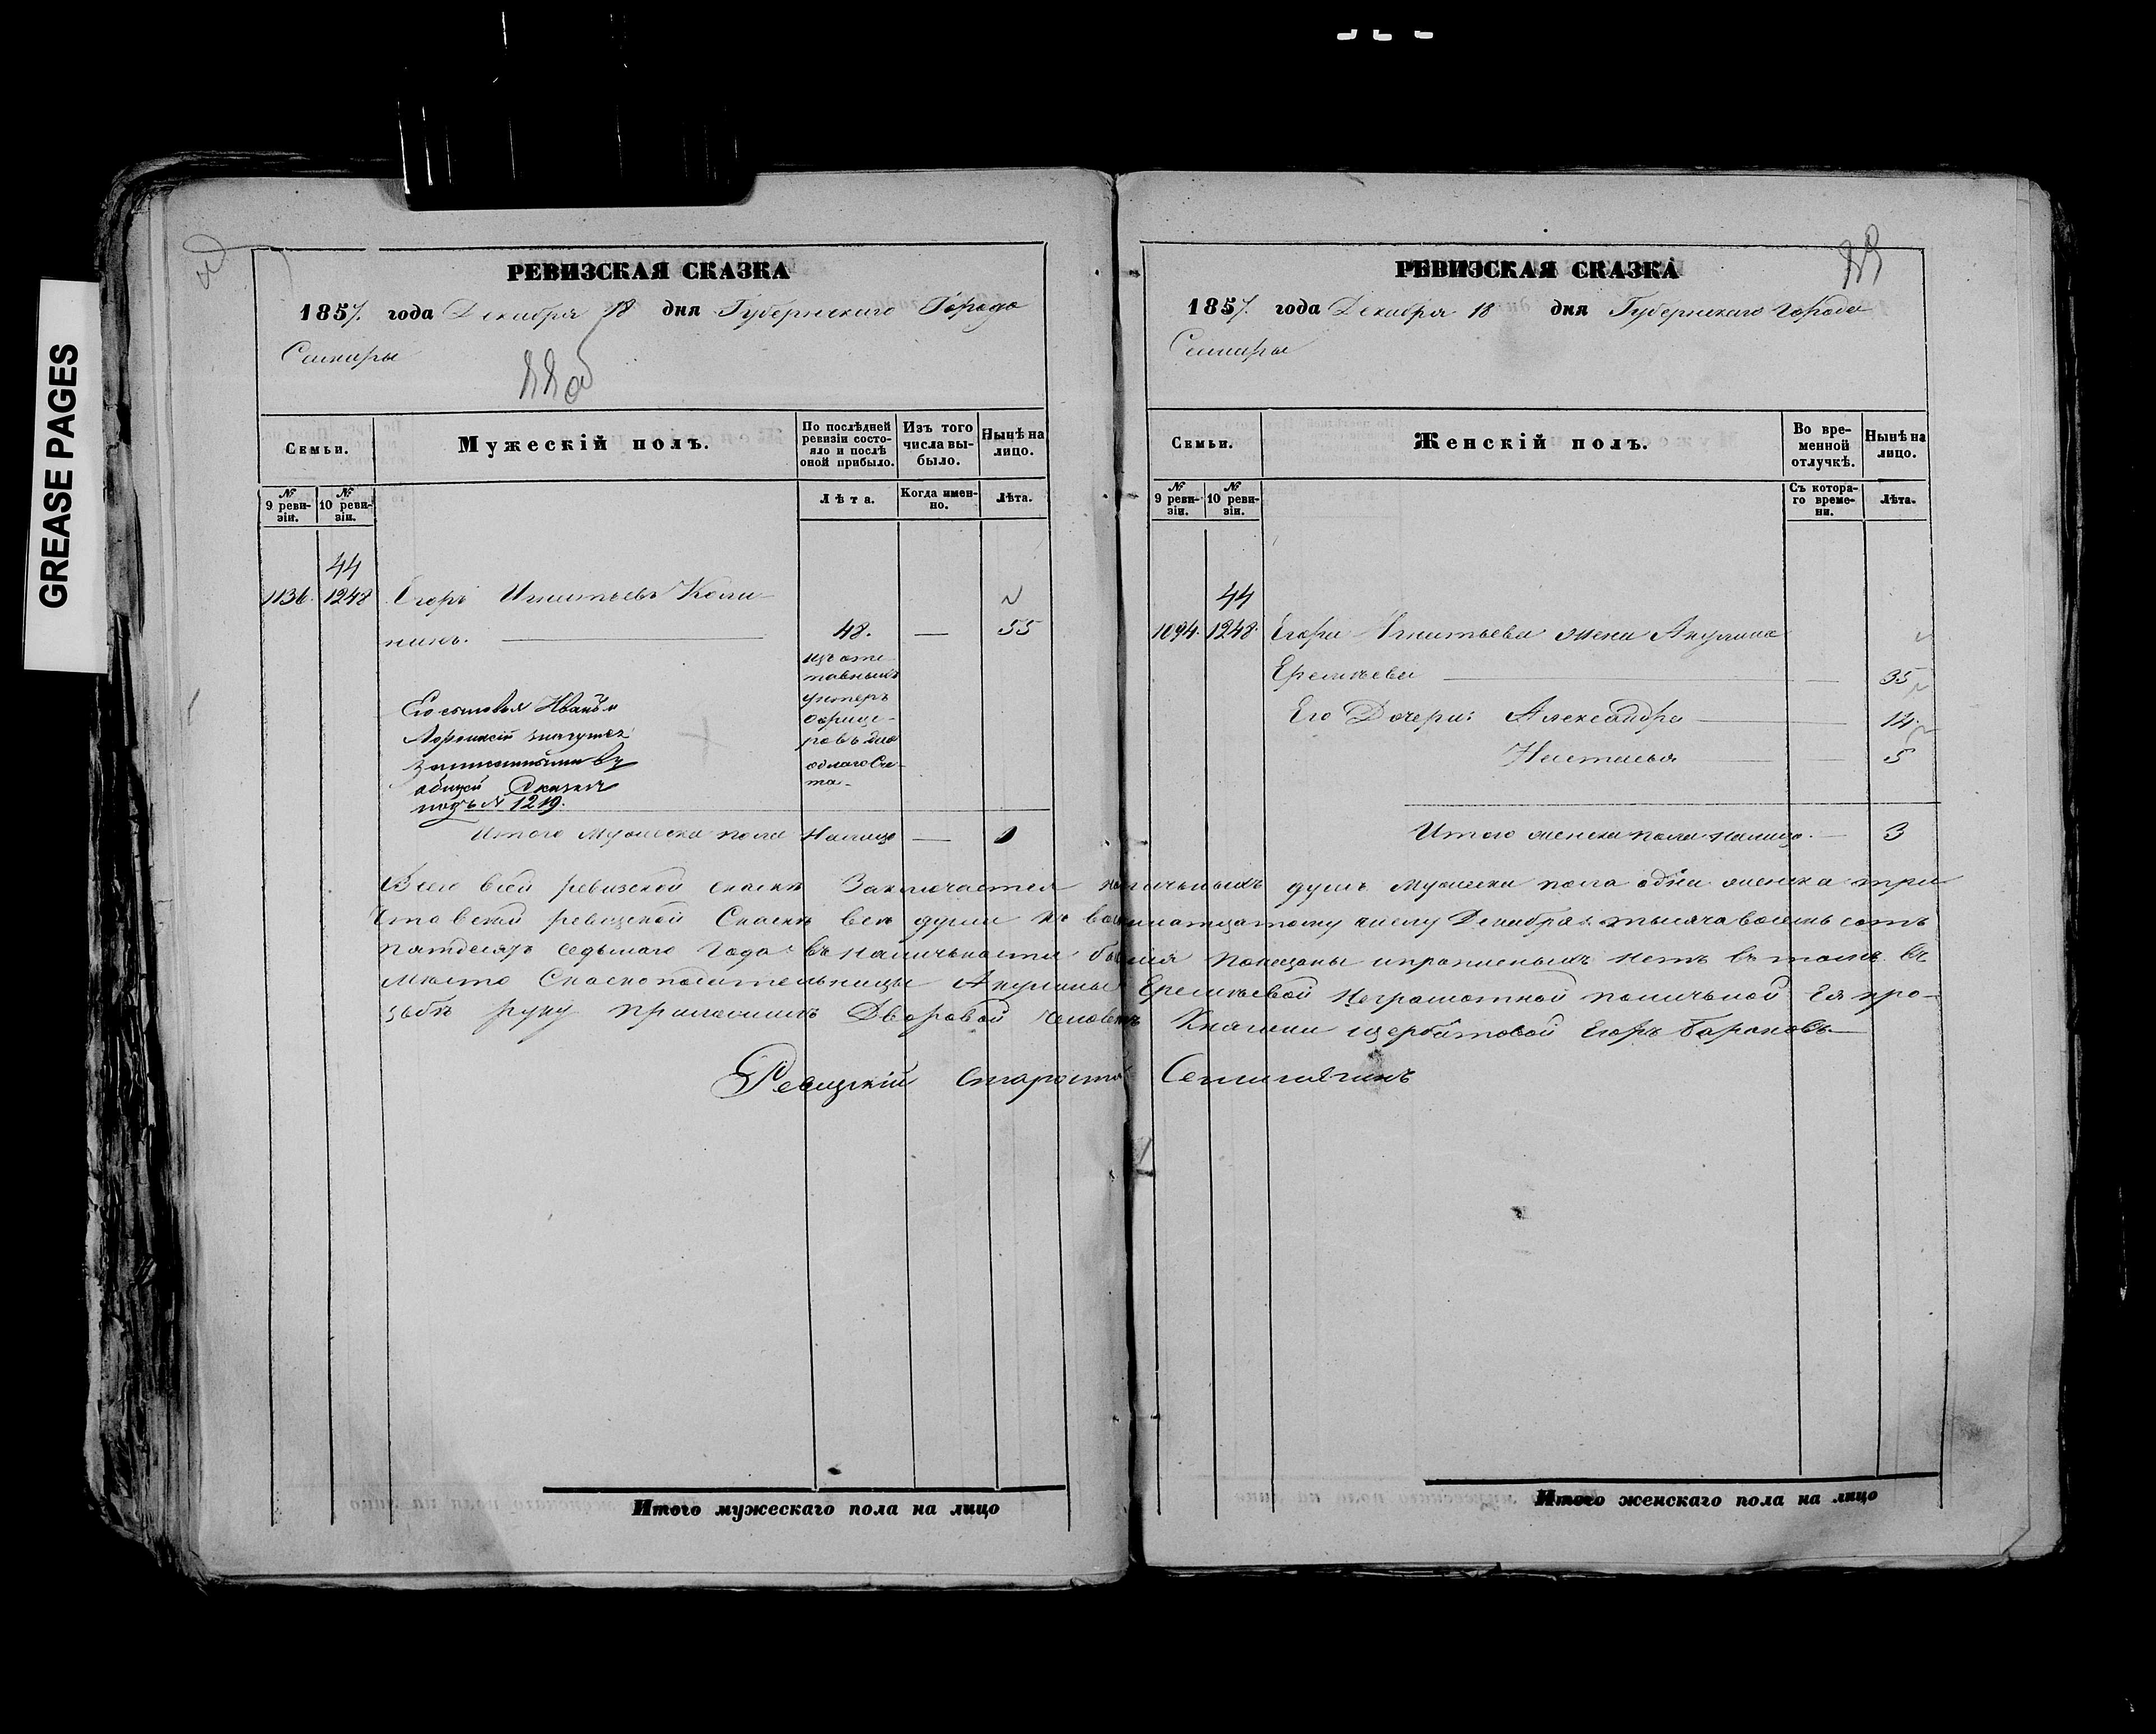 GREASE PAGES
РЕВИЗСКАЯ СКАЗКА
1857. года Декабря 18 дня Губернскаго Города
Самары
Семьи.
Мужескій полъ.
По послѣдней ревизіи состояло и послѣ оной прибыло.
Изъ того числа выбыло.
Нынѣ на лицо.
№ 9 ревизіи.
№ 10 ревизіи.
Лѣта.
Когда именно.
Лѣта.
44
1136. 1248 Егоръ Игнатьевъ Кали-
нинъ. 48. — 55
изъ отс-
тавныхъ
унтеръ
офице-
ровъ
Его сыновья Иванъ и
значутся
записанными въ
общей Сказкѣ
подъ № 1219.
Итого мужеска пола Налицо — 1
РЕВИЗСКАЯ СКАЗКА
1857. года Декабря 18 дня Губернскаго Города
Самары
Семьи.
Женскій полъ.
Во временной отлучкѣ.
Нынѣ на лицо.
№ 9 ревизіи.
№ 10 ревизіи.
Съ котораго времени.
Лѣта.
44
1094. 1248. Егора Игнатьева жена Акулина
Еремѣева — 35
Его Дочери: Александра — 14.
Настасья — 5
Итого женска пола налицо. — 3
Всего въ сей ревизской сказкѣ Заключается наличныхъ душъ мужеска пола одна женска три
Что въ сей ревизской Сказкѣ всѣ души къ восемнатцатому числу Декабря тысяча восемь сотъ
пятдесятъ седьмаго Года въ наличьности были показаны и прописныхъ нетъ въ томъ въ
мѣсто Сказкоподательницы Акулины Еремѣевой Неграмотной поличьной Ея про-
зьбѣ руку приложилъ Дворовой человекъ Княгини Щербатовой Егоръ Барановъ
Ревизскій Староста
Итого мужескаго пола на лицо
Итого женскаго пола на лицо